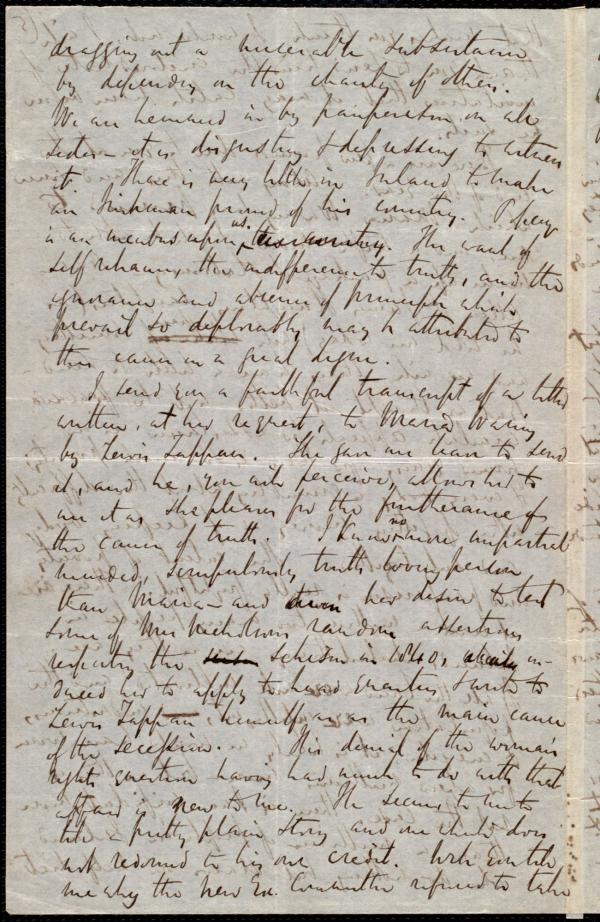 dragging out a miserable subsistence
by depending on the charity of others.
We are hemmed in by pauperism on all
sides - it is disgusting & depressing to witness
it. There is very little in Ireland to make
an Irishman proud of his country. Popery
is an incubus upon us. this country. The want of
self reliance, the indifference to truth, and the
ignorance and absence of principle which
prevail so deplorably may be attributed to
this cause in a great degree.
I send you a faithful transcript of a letter
written, at her request, to Maria Waring
by Lewis Tappan. She gave me leave to send
it, and he, you will perceive, allows her to
use it as she pleases for the furtherance of
the cause of truth. I know no more impartial
minded, scrupulously truth loving person
than Maria - and her desire to test
some of Mrs Nicholson's random assertions
respecting the schism in 1840, in-
duced her to apply to head quarters & write to
Lewis Tappan, himself as the main cause
of the secession. His denial of the woman's
rights question having had much to do with that
affair is new to me. He seems to me to
tell a pretty plain story and one which does
not redound to his own credit. Will you tell
me why the new Ex. Committee refused to take